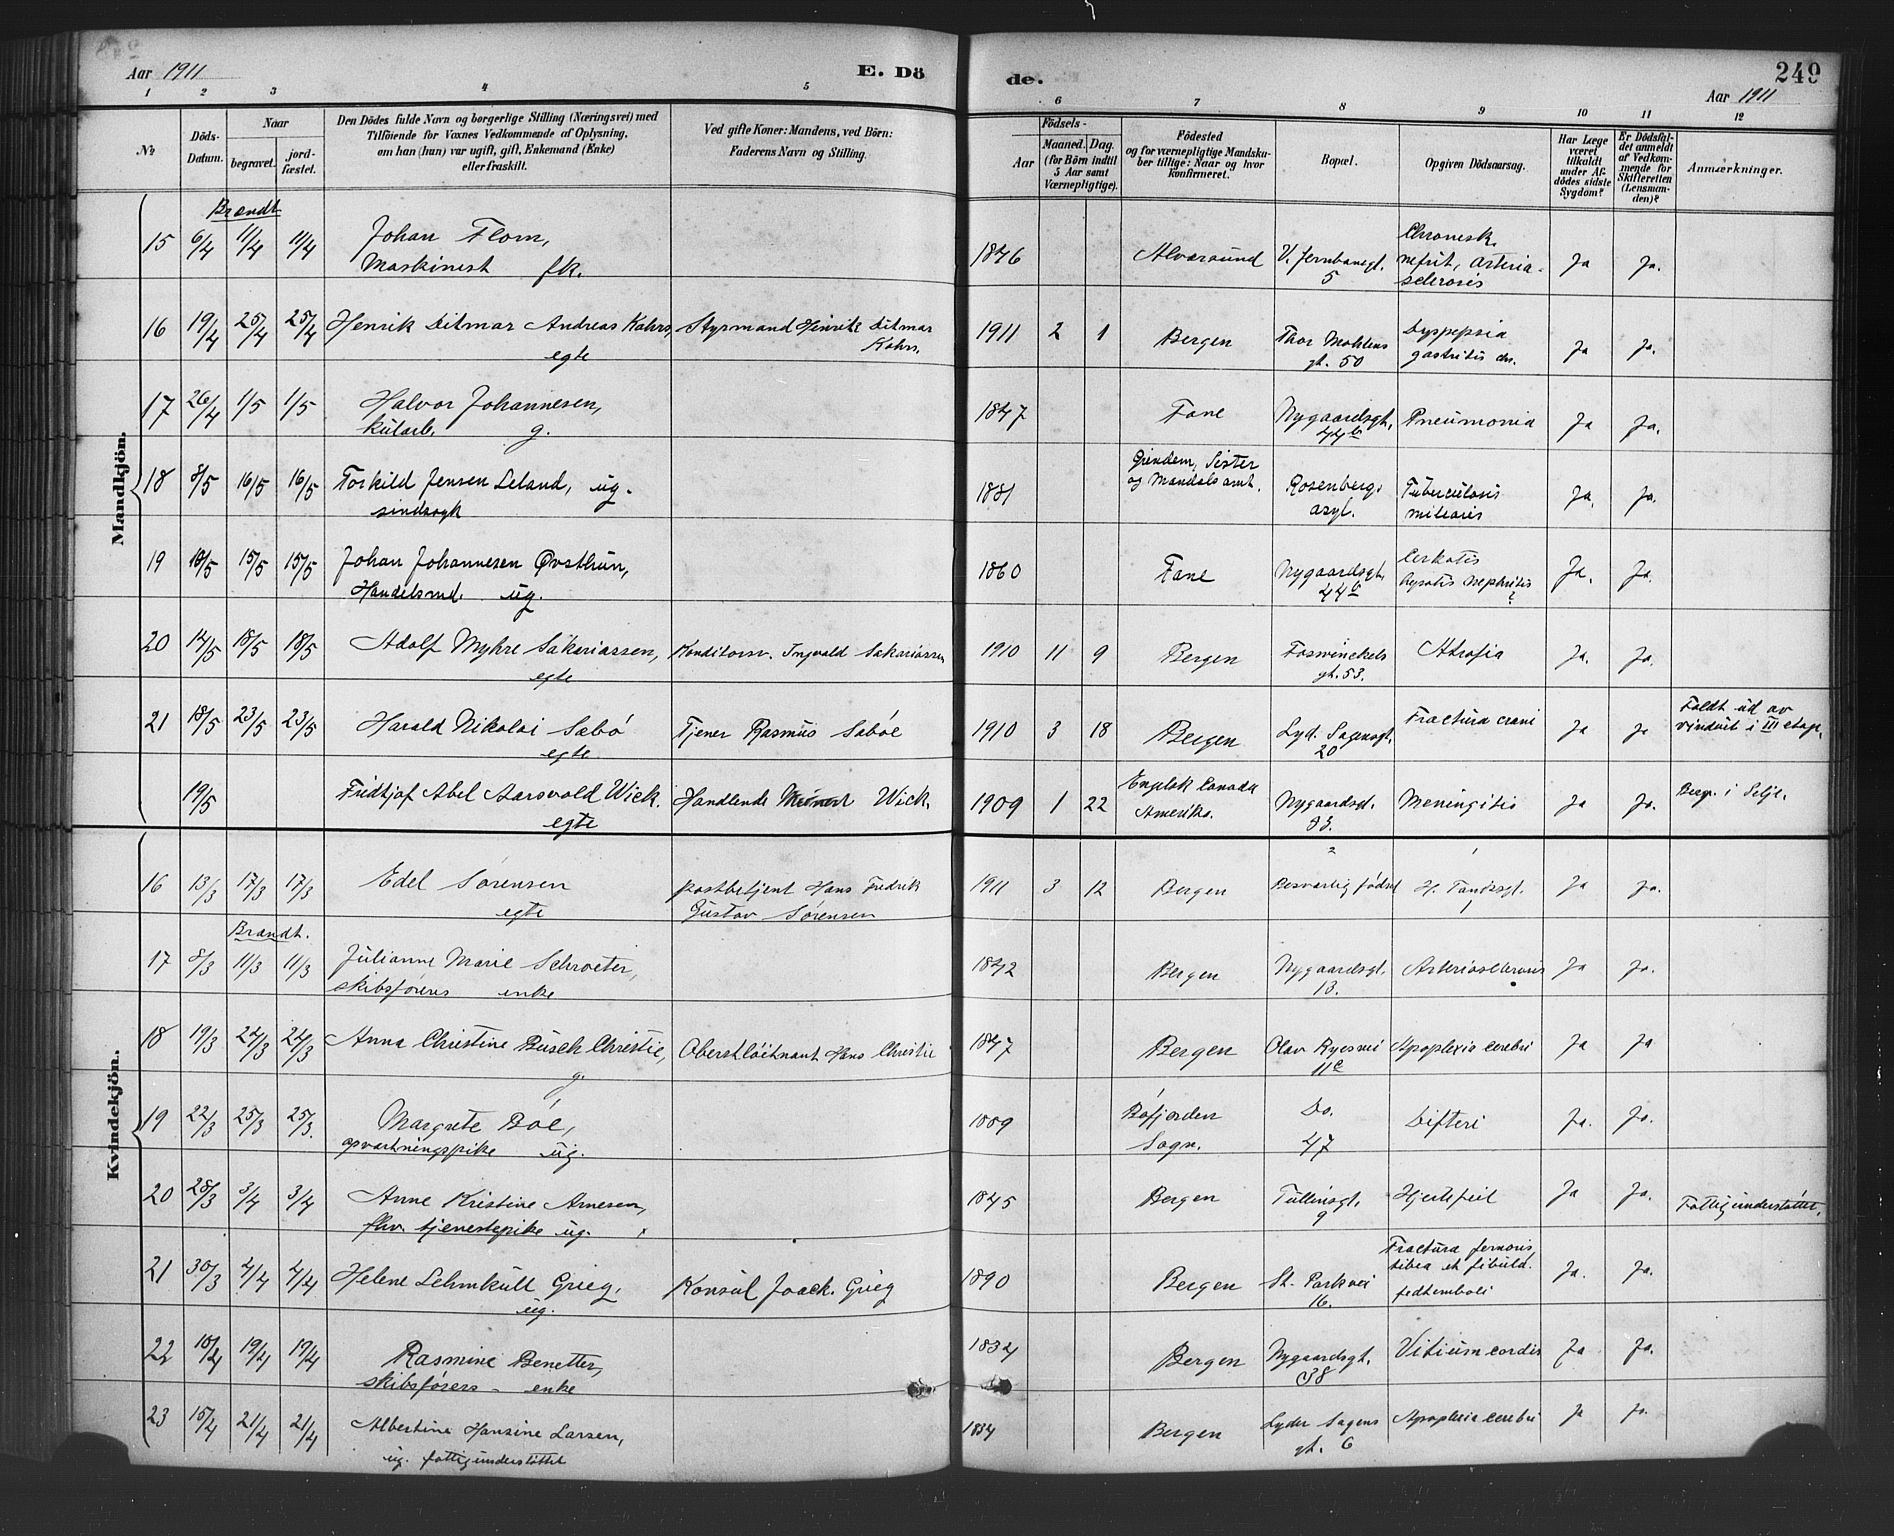 Aar 1911
E. Dö
de.
249
Aar 1911
1 2 3 4 5 6 7 8 9 10 11 12
No
Döds-Datum.
Naar
begravet.
jord-fæstet.
Den Dödes fulde Navn og borgerlige Stilling (Næringsvei) med
Tilföiende for Voxnes Vedkommende af Oplysning,
om han (hun) var ugift, gift, Enkemand (Enke)
eller fraskilt.
Ved gifte Koner: Mandens, ved Börn:
Faderens Navn og Stilling.
Födsels-
Aar
Maaned. Dag.
(for Börn indtil
5 Aar samt
Værnepligtige).
Födested
og for værnepligtige Mandska-
ber tillige: Naar og hvor
konfirmeret.
Bopæl.
Opgiven Dödsaarsag.
Har Læge
været
tilkaldt
under Af-
dödes sidste
Sygdom?
Er Dödsfal-
det anmeldt
af Vedkom-
mende for
Skifteretten
(Lensman-
den)?
Anmærkninger.
Mandkjön.
Brændt
15 6/4 11/4 11/4 Johan Flom, 1846 Alversund V. Jernbanegt. Chronisk Ja Ja.
Maskinist fk. 5 nefrit, arterio-
sclerosis
16 19/4 25/4 25/4 Henrik Ditmar Andreas Kahrs, Styrmand Hinrik Ditmar 1911 2 1 Bergen Thor Mohlens Dyspepsia Ja Ja.
egte Kahrs. gt. 50 gastritis chr.
17 26/4 1/5 1/5 Halvor Johannesen, 1847 Fane Nygaardsgt. Pneumonia Ja Ja.
kularb. g. 44b
18 8/5 16/5 16/5 Torkild Jensen Leland, ug. 1881 og Mandals amt. Rosenbergs Tuberculosis Ja. Ja.
sindssyk asyl. miliaris
19 10/5 15/5 15/5 Johan Johannesen Øvsthun, 1860 Fane Nygaardsgt. Ja. Ja.
Handelsmd. ug. 44b Nephritis
20 14/5 18/5 18/5 Adolf Myhre Sakariassen, Konditorsv. Ingvald Sakariassen 1910 11 9 Bergen Fosswinckels Atrofia Ja. Ja.
egte gt. 53.
21 18/5 23/5 23/5 Harald Nikolai Sæbö Tjener Rasmus Sæböe 1910 3 18 Bergen Lyd. Sagensgt. Fractura crani Ja Ja Faldt ud av
egte 20 vinduet i III etage.
19/5 Fridtjof Abel Aarsvold Wick. Handlende Wick. 1909 1 22 Engelsk Canada Nygaardsgt. Meningitis Ja Ja. Begr. i Selje.
egte Amerika. 93.
Kvindekjön.
16 13/3 17/3 17/3 Edel Sørensen postbetjent Hans Fredrik 1911 3 12 Bergen Besværlig fødsel H. Tandsgt. Ja Ja.
egte Gustav Sørensen 1
Brændt.
17 8/3 11/3 11/3 Julianne Marie Schroeter, 1842 Bergen Nygaardsgt. Arteriosclerosis Ja Ja.
skibsførers enke 13.
18 19/3 24/3 24/3 Anna Christine Busch Christie, Oberstløitnant Hans Christie 1847 Bergen Olav Ryesvei Apoplexia cerebri Ja Ja
g. 11c
19 22/3 25/3 25/3. Margrete Böe, 1889 Bøfjorden Do. Difteri Ja. Ja.
opvartningspike ug. Sogn. 47
20 28/3 3/4 3/4 Anne Kristine Arnesen, 1845 Bergen Tullinsgt. Hjertefeil Ja Ja. Fattigunderstöttet.
fhv. tjenestepike ug. 9
21 30/3 4/4 4/4 Helene Lehmkull Grieg. Konsul Joach. Grieg 1890 Bergen St. Parkvei Fractura femoris Ja. Ja.
ug. 16. tibia et fibula.
fedtemboli
22 10/4 19/4 19/4 Rasmine Benetter, 1834 Bergen Nygaardsgt. Vitium cordis Ja Ja.
skibsførers- enke 38
23 15/4 21/4 21/4 Albertine Hansine Larsen, 1834 Bergen Lyder Sagens Apoplexia cerebri Ja Ja.
ug. fattigunderstöttet gt. 6